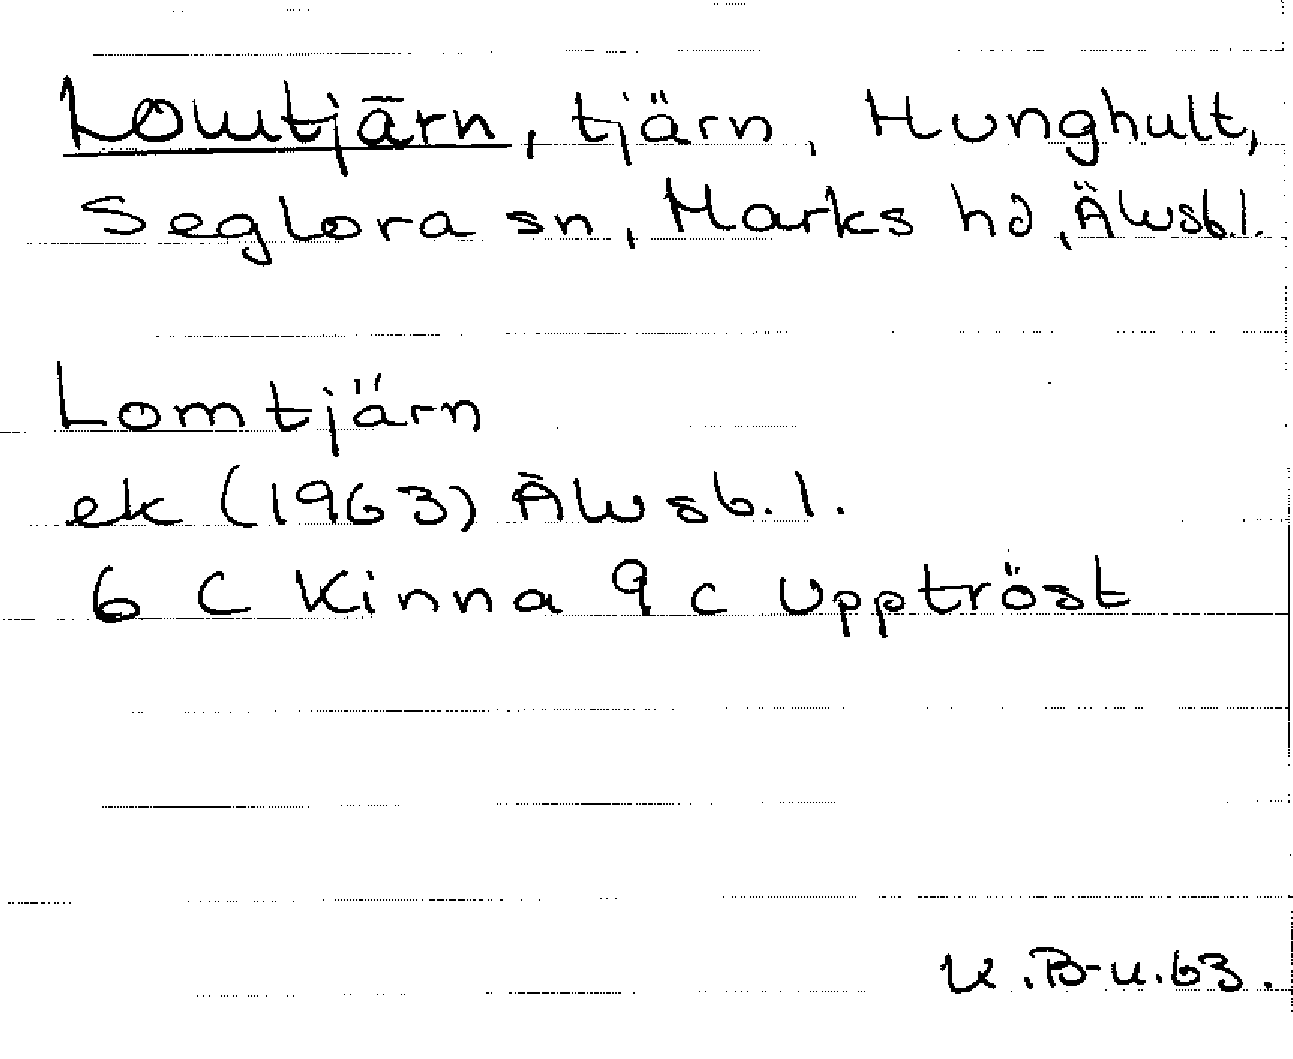 Lomtjärn, tjärn, Hunghult,
Seglora sn, Marks hd, Älvsb.l.
Lomtjärn
ek (1963) Älvsb.l.
6 C Kinna 9 c Upptröst
K.B-u.63.